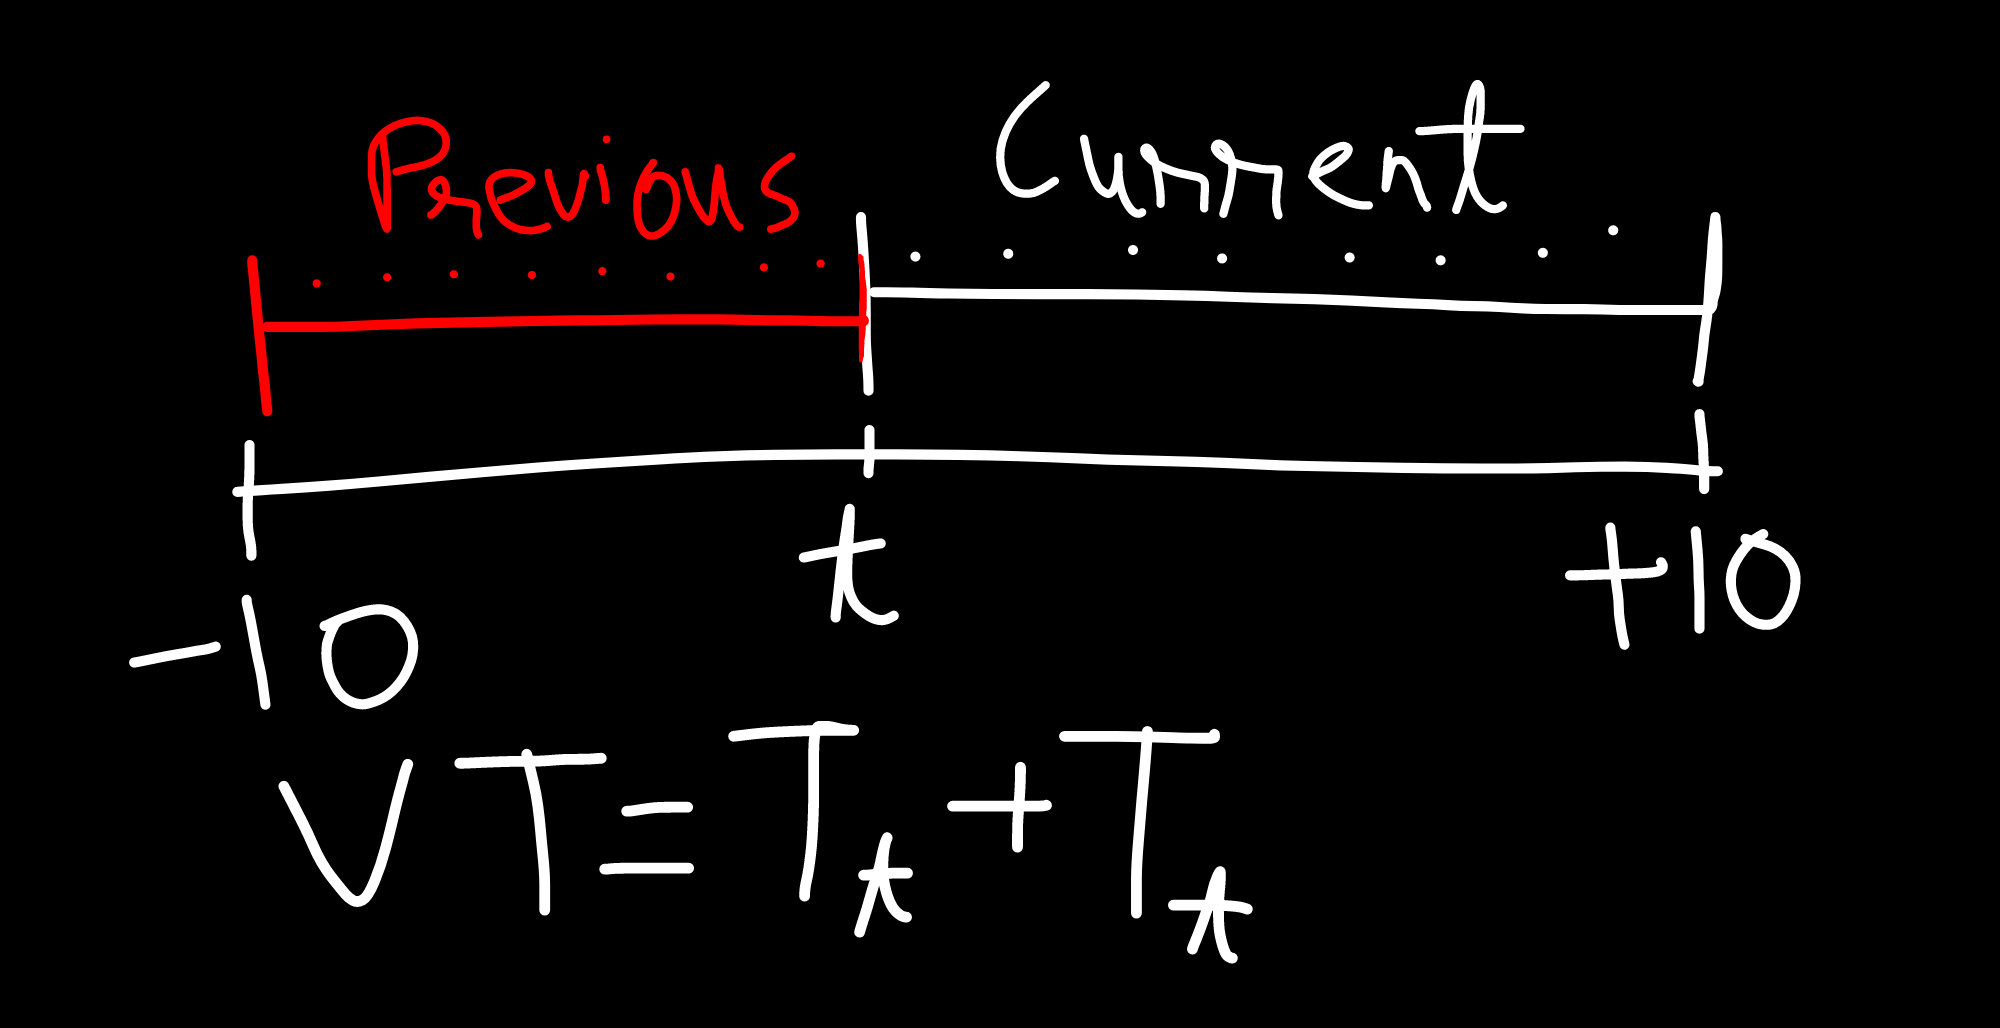 Previous Current
t
-10 +10
VT = Tt + Tt